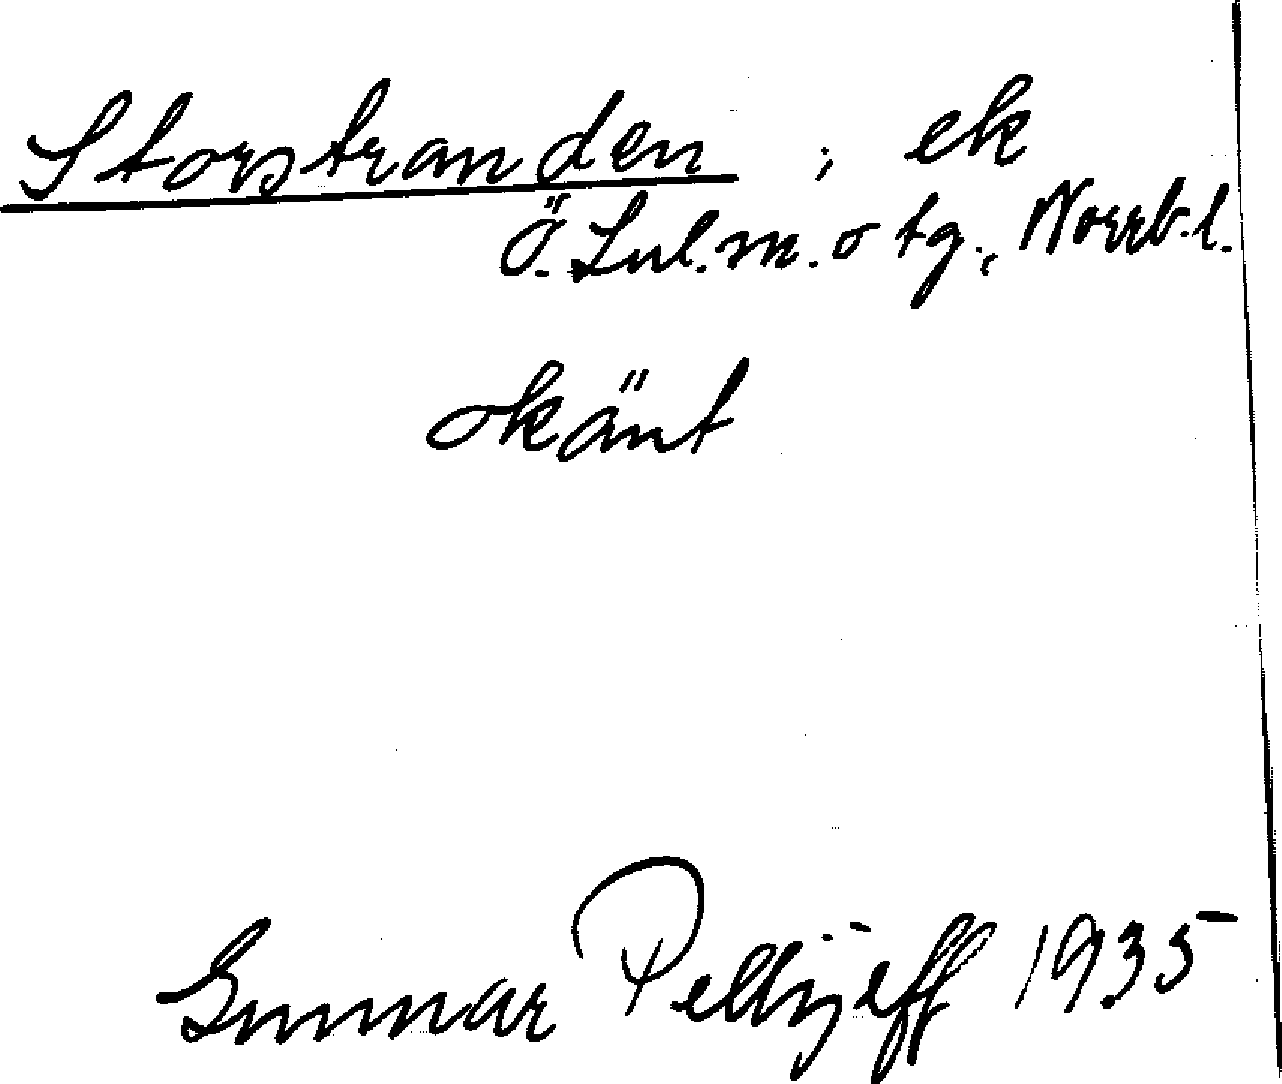 Storstranden ; ek
Ö. Lul. m. o tg., Norrb. l.
okänt
Gunnar Pellijeff 1935